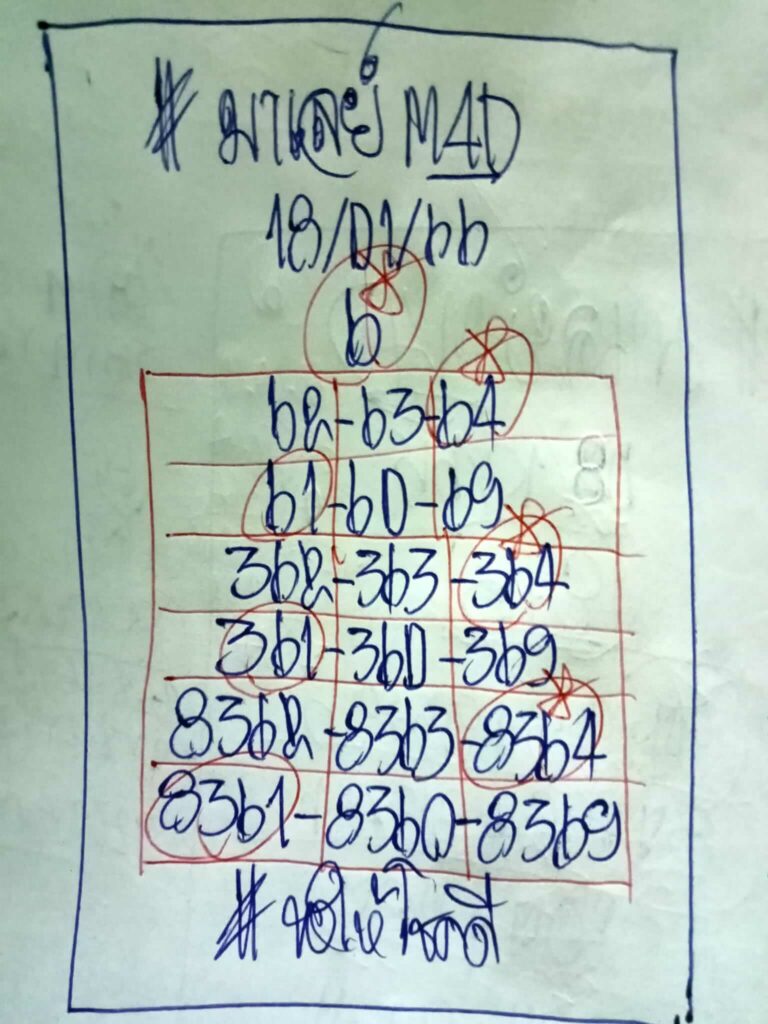 # มาเลย์ M4D
18/01/66
6
62-63-64
61-60-69
362-363-364
361-360-369
8362-8363-8364
8361-8360-8369
# ขอให้โชคดี